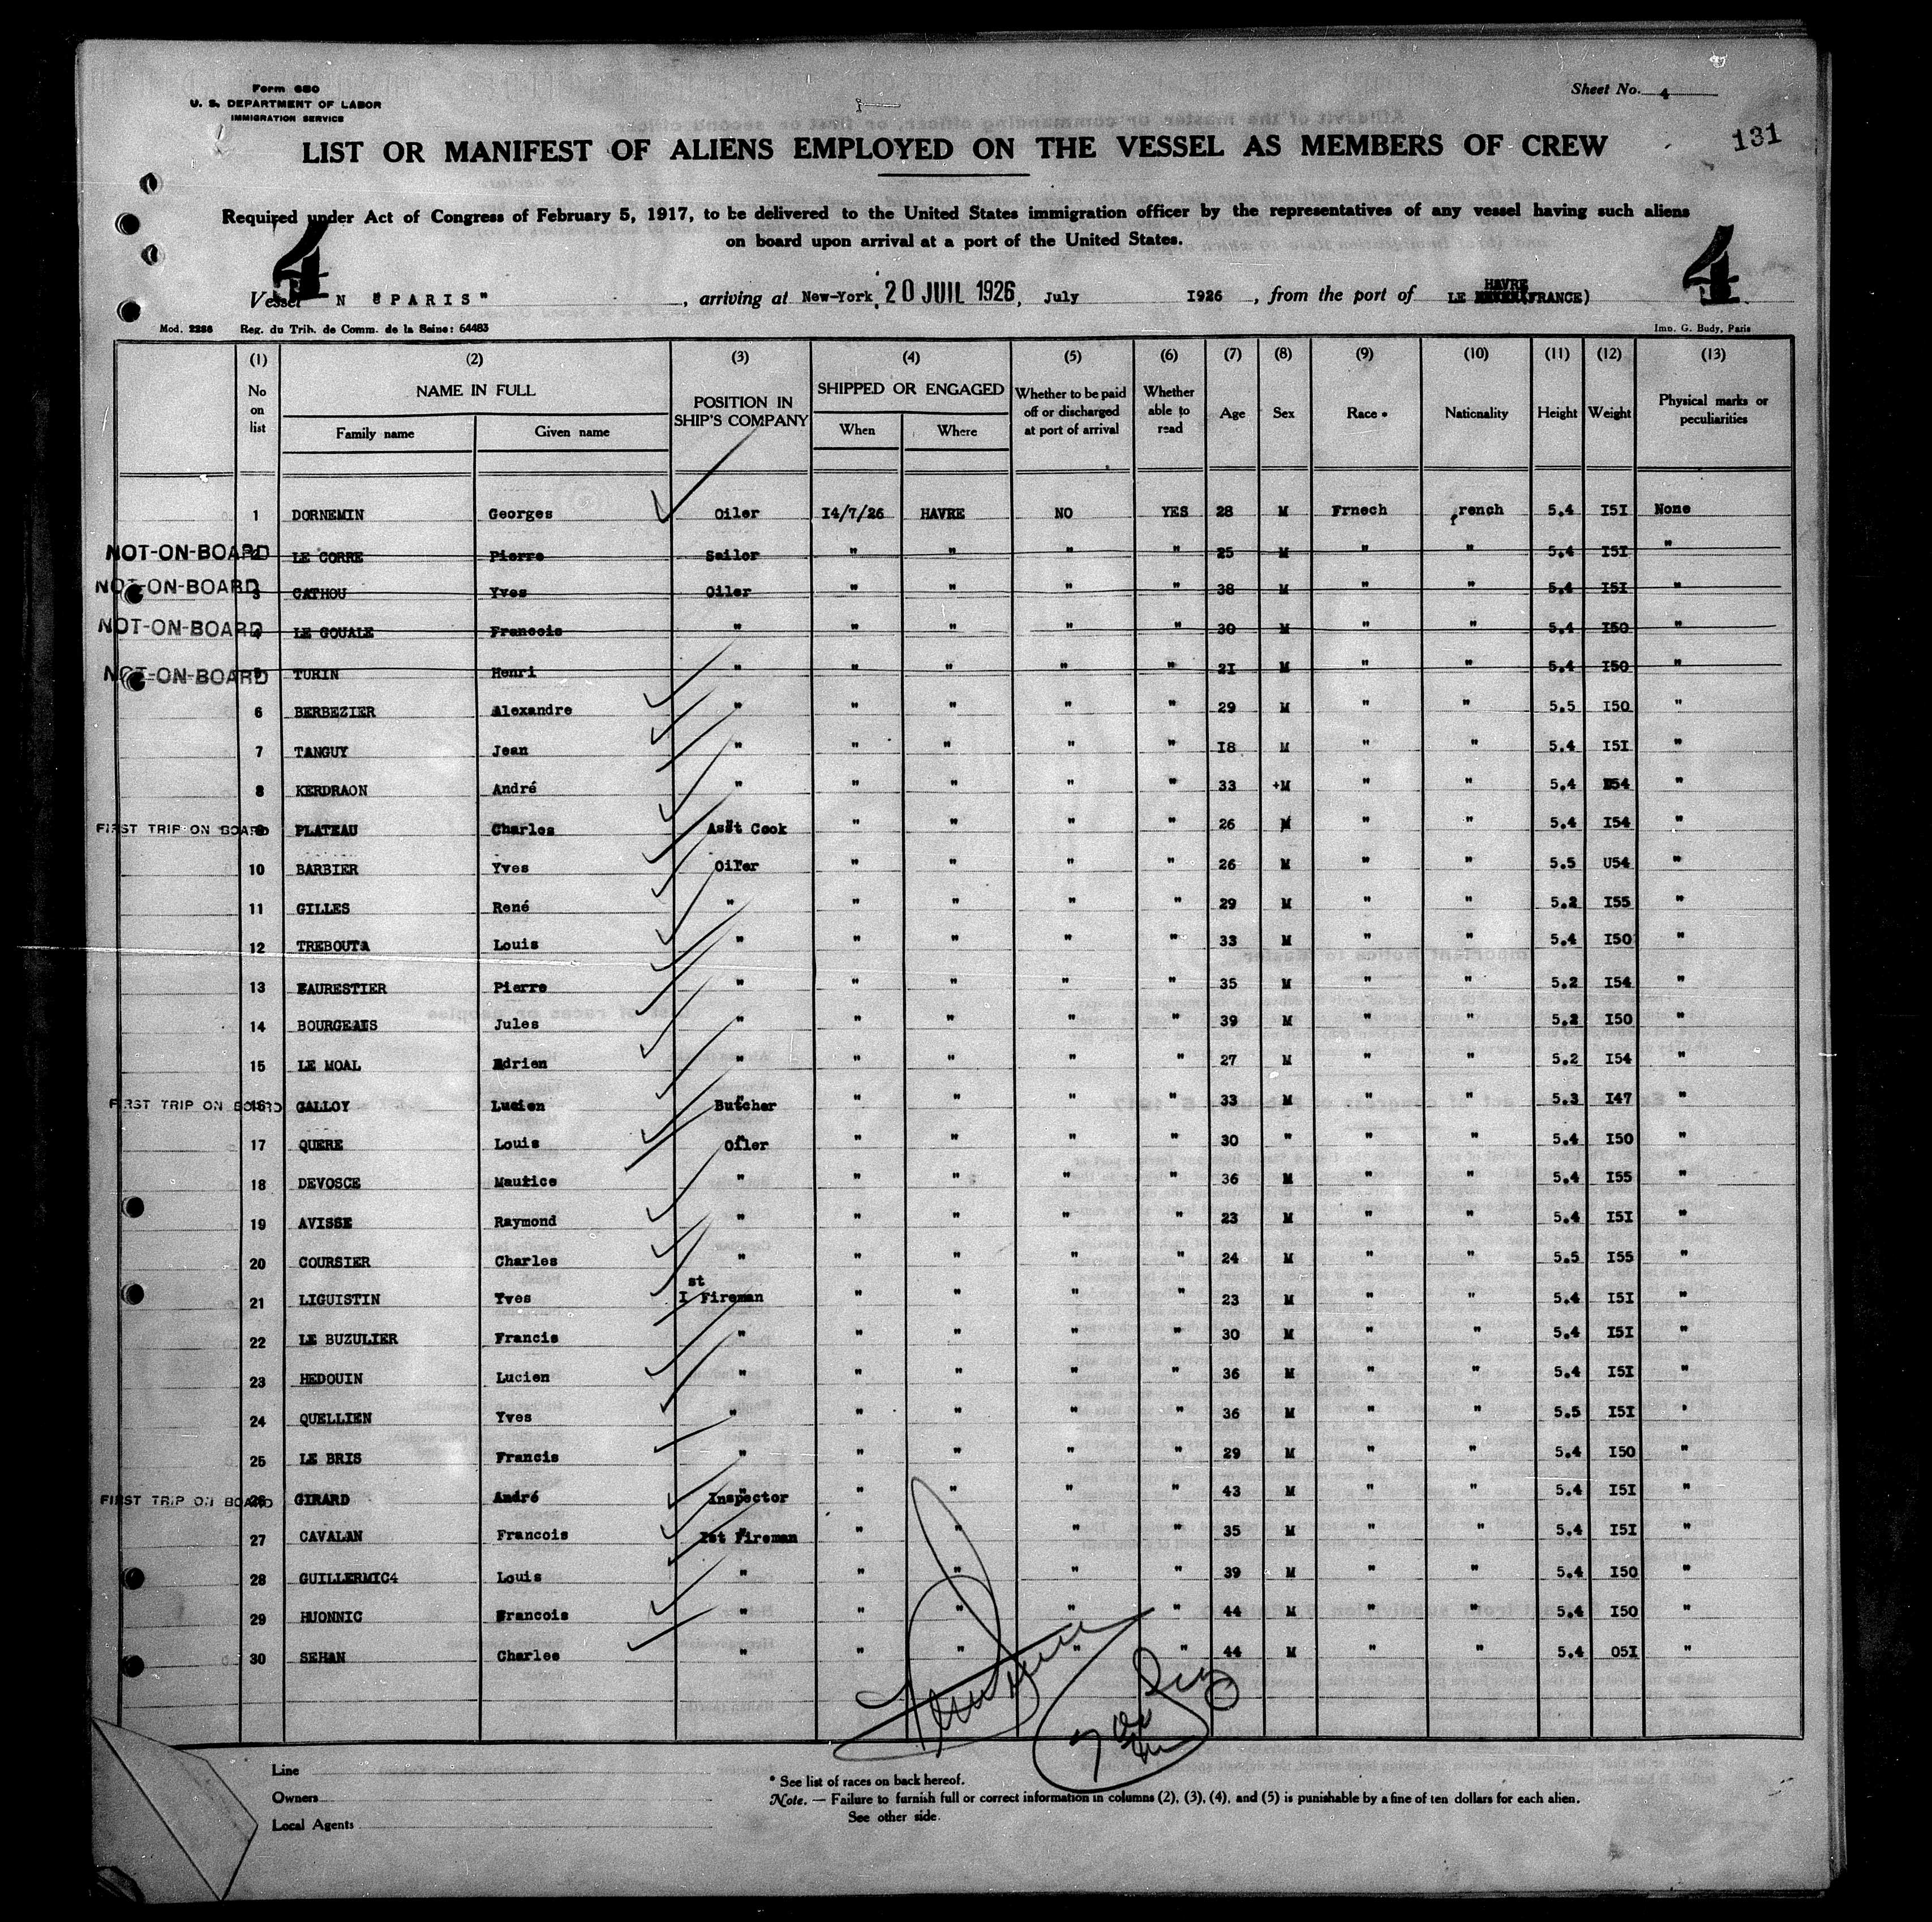 Form 680
U. S. DEPARTMENT OF LABOR
IMMIGRATION SERVICE
Sheet No. 4
131
LIST OR MANIFEST OF ALIENS EMPLOYED ON THE VESSEL AS MEMBERS OF CREW
Required under Act of Congress of February 5, 1917, to be delivered to the United States immigration officer by the representatives of any vessel having such aliens
on board upon arrival at a port of the United States.
4 4
Vessel N "PARIS" , arriving at New-York, 20 JUIL 1926, July 1926 , from the port of LE HAVRE (FRANCE)
Mod. 2286 Reg. du Trib. de Comm. de la Seine: 64483 Imp. G. Budy, Paris
(1) (2) (3) (4) (5) (6) (7) (8) (9) (10) (11) (12) (13)
No on list NAME IN FULL Family name Given name POSITION IN SHIP'S COMPANY SHIPPED OR ENGAGED When Where Whether to be paid off or discharged at port of arrival Whether able to read Age Sex Race * Nationality Height Weight Physical marks or peculiarities
1 DORNEMIN Georges Oiler I4/7/26 HAVRE NO YES 28 M Frnech french 5.4 I5I None
NOT-ON-BOARD 2 LE CORRE Pierre Sailor " " " " 25 M " " 5.4 I5I "
NOT-ON-BOARD 3 CATHOU Yves Oiler " " " " 38 M " " 5.4 I5I "
NOT-ON-BOARD 4 LE GOUALE Francois " " " " " 30 M " " 5.4 I50 "
NOT-ON-BOARD 5 TURIN Henri " " " " " 2I M " " 5.4 I50 "
6 BERBEZIER Alexandre " " " " " 29 M " " 5.5 I50 "
7 TANGUY Jean " " " " " I8 M " " 5.4 I5I "
8 KERDRAON André " " " " " 33 +M " " 5.4 I54 "
FIRST TRIP ON BOARD 9 PLATEAU Charles Asst Cook " " " " 26 M " " 5.4 I54 "
10 BARBIER Yves Oiler " " " " 26 M " " 5.5 U54 "
11 GILLES René " " " " " 29 M " " 5.2 I55 "
12 TREBOUTA Louis " " " " " 33 M " " 5.4 I50 "
13 FAURESTIER Pierre " " " " " 35 M " " 5.2 I54 "
14 BOURGEAIS Jules " " " " " 39 M " " 5.2 I50 "
15 LE MOAL Adrien " " " " " 27 M " " 5.2 I54 "
FIRST TRIP ON BOARD 16 GALLOY Lucien Butcher " " " " 33 M " " 5.3 I47 "
17 QUERE Louis Oiler " " " " 30 " " " 5.4 I50 "
18 DEVOSCE Maurice " " " " " 36 M " " 5.4 I55 "
19 AVISSE Raymond " " " " " 23 M " " 5.4 I5I "
20 COURSIER Charles " " " " " 24 M " " 5.5 I55 "
21 LIGUISTIN Yves I st Fireman " " " " 23 M " " 5.4 I5I "
22 LE BUZULIER Francis " " " " " 30 M " " 5.4 I5I "
23 HEDOUIN Lucien " " " " " 36 M " " 5.4 I5I "
24 QUELLIEN Yves " " " " " 36 M " " 5.5 I5I '
25 LE BRIS Francis " " " " " 29 M " " 5.4 I50 "
FIRST TRIP ON BOARD 26 GIRARD André Inspector " " " " 43 M " " 5.4 I5I "
27 CAVALAN Francois Ist Fireman " " " " 35 M " " 5.4 I5I "
28 GUILLERMIC4 Louis " " " " " 39 M " " 5.4 I50 "
29 HUONNIC Francois " " " " " 44 M " " 5.4 I50 "
30 SEHAN Charles " " " " " 44 M " " 5.4 O5I "
Line
Owners
Local Agents
* See list of races on back hereof.
Note. — Failure to furnish full or correct information in columns (2), (3), (4), and (5) is punishable by a fine of ten dollars for each alien.
See other side.